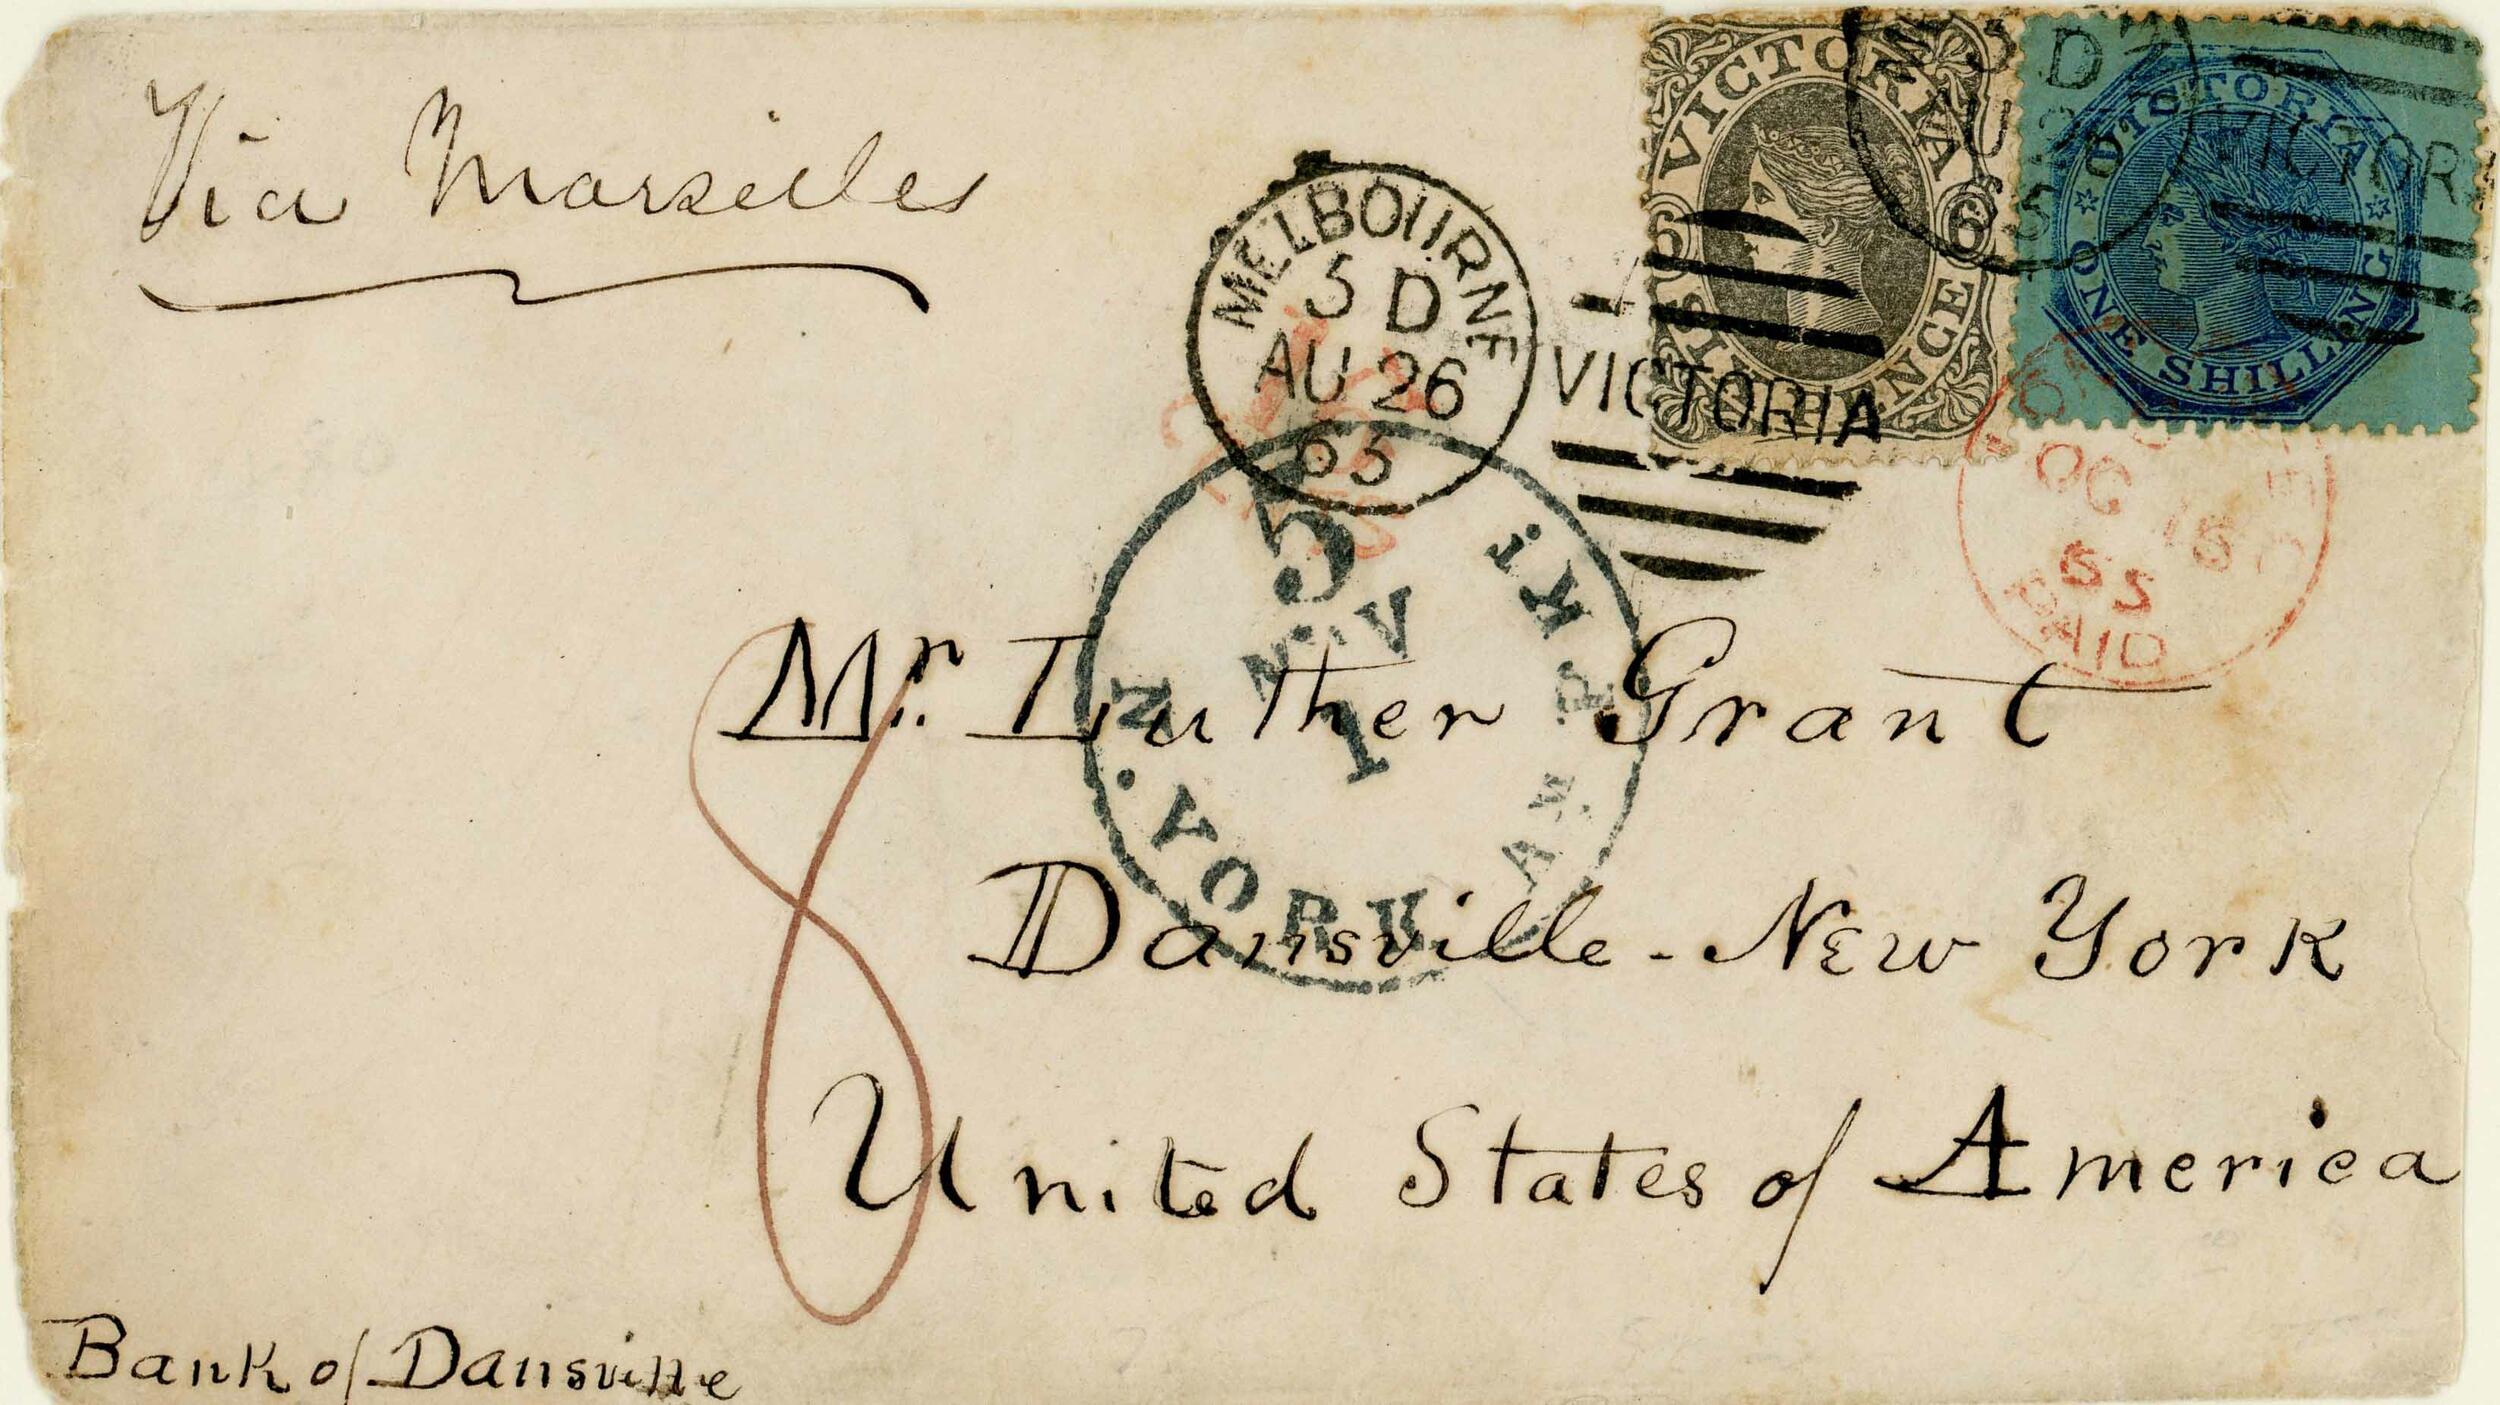 Via Marseilles
VICTORIA
6 6
SIX PENCE
VICTORIA
ONE SHILLING
D
AU
VICTORIA
MELBOURNE
5 D
AU 26
65
VICTORIA
OC 16
65
PAID
5
NOV
1
N. YORK AM. PKT.
Mr. Luther Grant
Dansville - New York
United States of America
8
Bank of Dansville